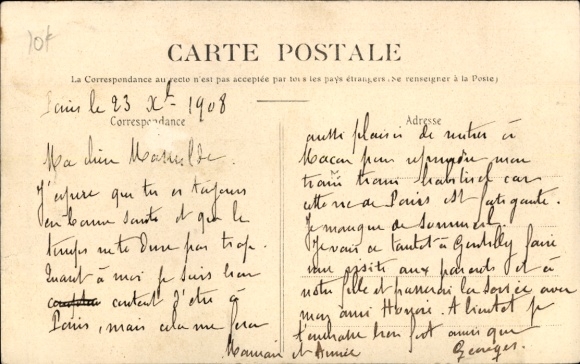 10f
CARTE POSTALE
La Correspondance au recto n'est pas acceptée par tous les pays étrangers (Se renseigner à la Poste)
Paris le 23 Xbre 1908
Correspondance
Ma chère Mathilde.
J'espère que tu es toujours
en bonne santé et que le
temps ne te dure pas trop.
Quant à moi je suis bien
content d'être à
Paris, mais cela me fera
Adresse
aussi plaisir de rentrer à
Macon pour reprendre mon
train train habituel car
cette vie de Paris est fatigante.
Je manque de sommeil.
Je vais ce tantôt à Gentilly faire
une visite aux parents et à
notre fille et passerai la soirée avec
mon ami Honoré. A bientôt je
t'embrasse bien fort ainsi que
Maman et Aimée
Georges.